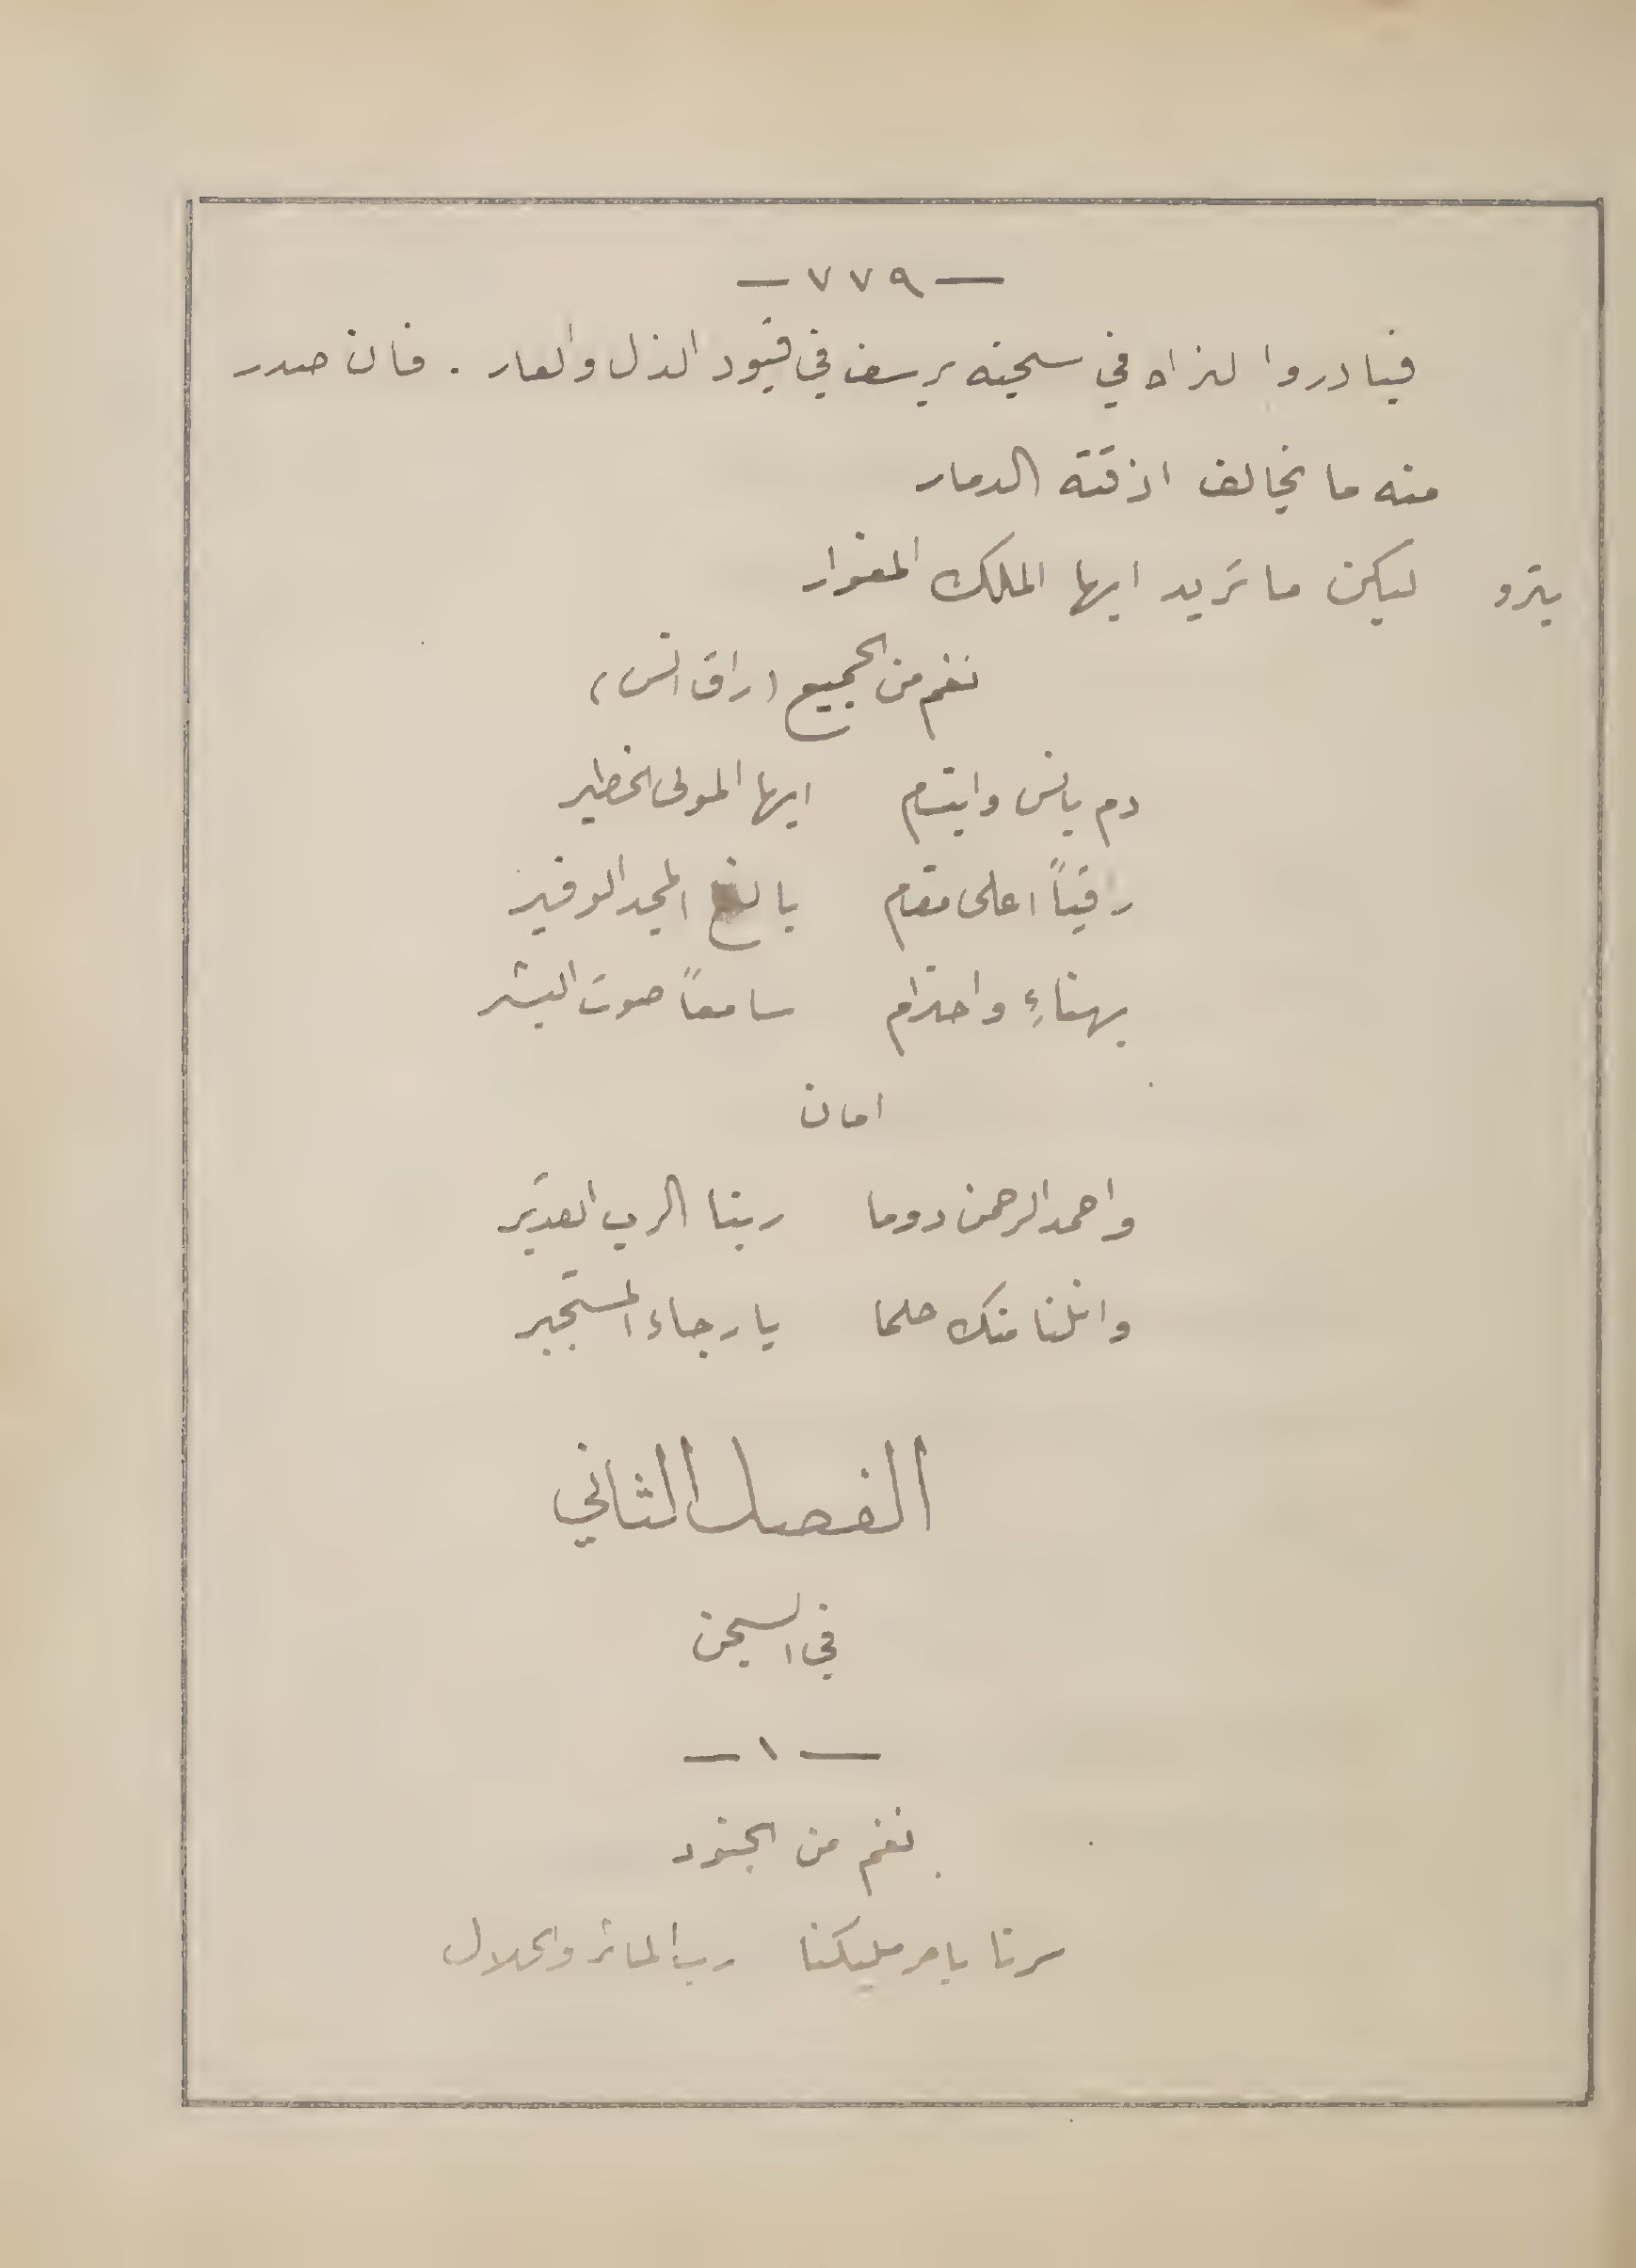 — ٧٧٩ —
فبادروا لنراه في سجنه يرسف في قيود الذل والعار . فان صدر
منه ما يخالف اذقته الدمار
بترو ليكن ما تريد ايها الملك المغوار
نغم من الجميع ( راق انس )
دم بانس وابتسام ايها المولى الخطير
راقياً اعلى مقام بالغ المجد الوفير
بهناءٍ واحترام سامعاً صوت البشير
امان
واحمد الرحمن دوما ربنا الرب القدير
وانلنا منك حلما يا رجاء المستجير
الفصل الثاني
في السجن
— ١ —
نغم من الجنود
سرنا بامر مليكنا رب المآثر والجلال